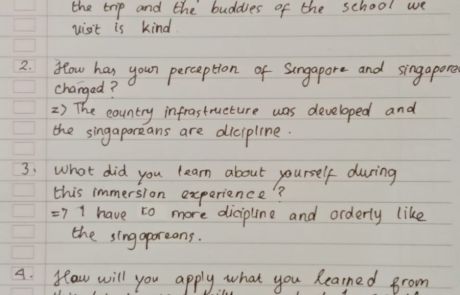 the trip and the buddies of the school we
visit is kind.
2. How has your perception of Singapore and singapore
changed?
=) The country infrastructure was developed and
the singaporeans are dicipline.
3. What did you learn about yourself during
this immersion experience?
=> I have to more dicipline and orderly like
the singaporeans.
4. How will you apply what you learned from